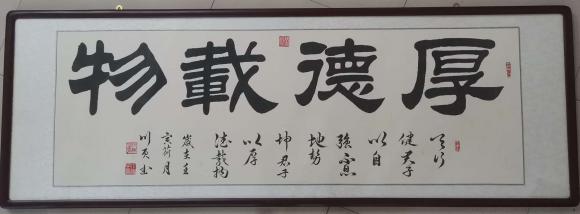 厚德載物
天行
健君子
以自
強不息
地勢
坤君子
以厚
德載物
歲在壬
寅荷月
川
书